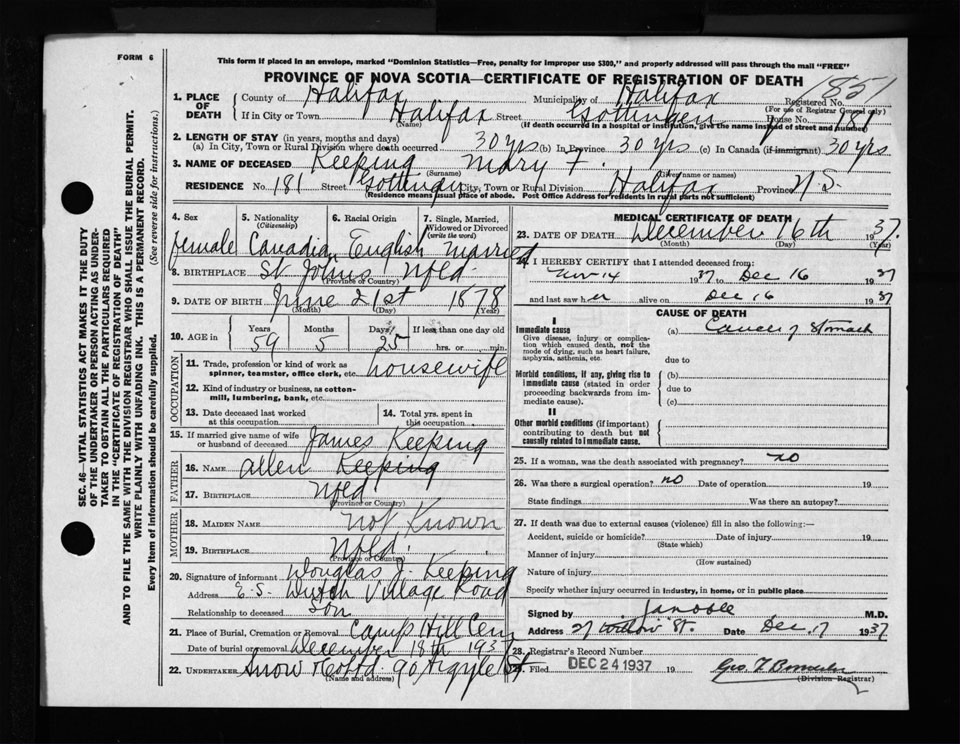 FORM 6
This form if placed in an envelope, marked "Dominion Statistics—Free, penalty for improper use $300," and properly addressed will pass through the mail "FREE"
PROVINCE OF NOVA SCOTIA—CERTIFICATE OF REGISTRATION OF DEATH
1851
1. PLACE OF DEATH
County of Halifax Municipality of Halifax Registered No.
(For use of Registrar General only)
If in City or Town Halifax Street Gottingen House No. 181
(Name) (If death occurred in a hospital or institution, give the name instead of street and number)
2. LENGTH OF STAY (in years, months and days)
(a) In City, Town or Rural Division where death occurred 30 yrs (b) In Province 30 yrs (c) In Canada (if immigrant) 30 yrs
3. NAME OF DECEASED Keeping Mary F.
(Surname) (Given name or names)
RESIDENCE No. 181 Street Gottingen City, Town or Rural Division Halifax Province N.S.
(Residence means usual place of abode. Post Office Address for residents in rural parts not sufficient)
4. Sex female
5. Nationality (Citizenship) Canadian
6. Racial Origin English
7. Single, Married, Widowed or Divorced (write the word) Married
8. BIRTHPLACE St Johns Nfld.
(Province or Country)
9. DATE OF BIRTH June 21st 1878
(Month) (Day) (Year)
10. AGE in Years 59 Months 5 Days 25 If less than one day old hrs. or min.
OCCUPATION
11. Trade, profession or kind of work as spinner, teamster, office clerk, etc. housewife
12. Kind of industry or business, as cotton-mill, lumbering, bank, etc.
13. Date deceased last worked at this occupation
14. Total yrs. spent in this occupation
15. If married give name of wife or husband of deceased James Keeping
FATHER
16. NAME Allen Keeping
17. BIRTHPLACE Nfld
(Province or Country)
MOTHER
18. MAIDEN NAME Not Known
19. BIRTHPLACE Nfld.
(Province or Country)
20. Signature of informant Douglas J. Keeping
Address E.S. Dutch Village Road
Relationship to deceased Son
21. Place of Burial, Cremation or Removal Camp Hill Cem
Date of burial or removal December 18th 1937
22. UNDERTAKER Snow & Co Ltd. 90 Argyle St
(Name and address)
MEDICAL CERTIFICATE OF DEATH
23. DATE OF DEATH December 16th 1937.
(Month) (Day) (Year)
24. I HEREBY CERTIFY that I attended deceased from:
Nov 14 1937 to Dec 16 1937
and last saw her alive on Dec 16 1937
CAUSE OF DEATH
I
Immediate cause
Give disease, injury or complication which caused death, not the mode of dying, such as heart failure, asphyxia, asthenia, etc.
(a) Cancer of Stomach
due to
Morbid conditions, if any, giving rise to immediate cause (stated in order proceeding backwards from immediate cause).
(b)
due to
(c)
II
Other morbid conditions (if important) contributing to death but not causally related to immediate cause.
25. If a woman, was the death associated with pregnancy? no
26. Was there a surgical operation? no Date of operation 19
State findings Was there an autopsy?
27. If death was due to external causes (violence) fill in also the following:—
Accident, suicide or homicide? Date of injury 19
(State which)
Manner of injury
(How sustained)
Nature of injury
Specify whether injury occurred in Industry, in home, or in public place
Signed by M.D.
Address 27 Willow St. Date Dec. 17 1937
28. Registrar's Record Number
29. Filed DEC 24 1937 19
(Division Registrar)
SEC. 46—VITAL STATISTICS ACT MAKES IT THE DUTY
OF THE UNDERTAKER OR PERSON ACTING AS UNDERTAKER TO OBTAIN ALL THE PARTICULARS REQUIRED
IN THE "CERTIFICATE OF REGISTRATION OF DEATH"
AND TO FILE THE SAME WITH THE DIVISION REGISTRAR WHO SHALL ISSUE THE BURIAL PERMIT.
WRITE PLAINLY WITH UNFADING INK. THIS IS A PERMANENT RECORD.
Every item of information should be carefully supplied. (See reverse side for instructions.)